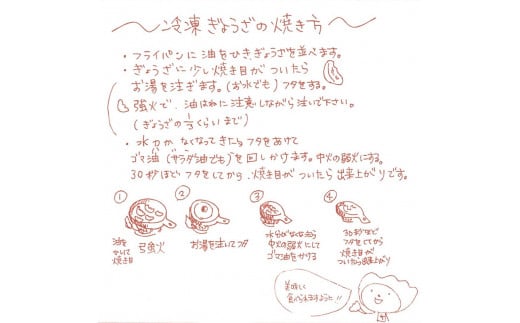 〜冷凍ぎょうざの焼き方〜
・フライパンに油をひき、ぎょうざを並べます。
・ぎょうざに少し焼き目がついたら
お湯を注ぎます。(お水でも)フタをする。
強火で、油はねに注意しながら注いで下さい。
(ぎょうざの1/3くらいまで)
・水分がなくなってきたらフタをあけて
ゴマ油(サラダ油でも)を回しかけます。中火の弱火にする。
30秒ほどフタをしてから、焼き目がついたら出来上がりです。
① ② ③ ④
油を
しいて
焼き目
強火
お湯を注いでフタ
水分がなくなったら
中火の弱火にして
ゴマ油をかける
30秒ほど
フタをしてから
焼き目が
ついたら出来上がり
美味しく
食べられますように!!